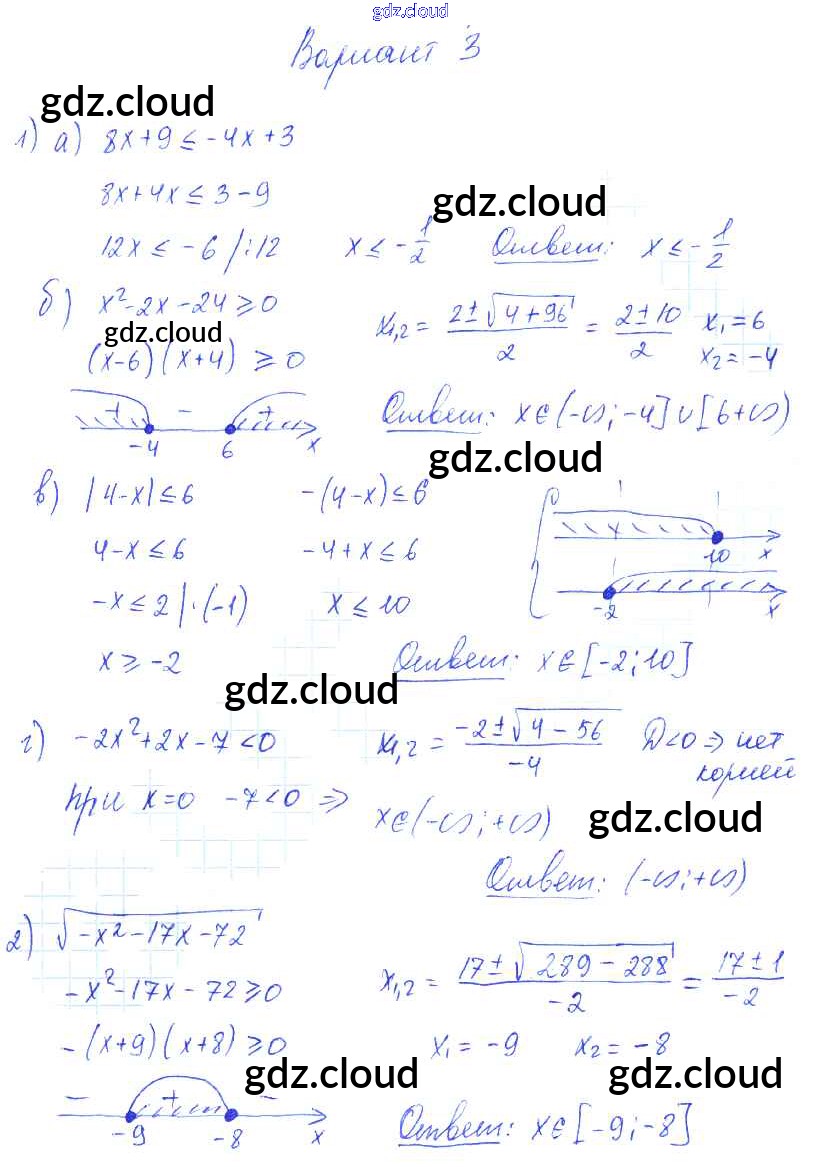 gdz.cloud
Вариант 3
gdz.cloud
1) а) 8x+9 ≤ -4x+3
8x+4x ≤ 3-9
gdz.cloud
12x ≤ -6 /:12 x ≤ -1/2 Ответ: x ≤ -1/2
б) x²-2x-24 ≥ 0 x₁,₂ = (2±√(4+96))/2 = (2±10)/2 x₁=6
gdz.cloud
(x-6)(x+4) ≥ 0 x₂=-4
+ - + Ответ: x∈(-∞;-4]∪[6+∞)
-4 6 x
gdz.cloud
в) |4-x| ≤ 6 -(4-x) ≤ 6
4-x ≤ 6 -4+x ≤ 6 10 x
-x ≤ 2 |·(-1) x ≤ 10 -2 x
x ≥ -2 Ответ: x∈[-2;10]
gdz.cloud
г) -2x²+2x-7<0 x₁,₂ = (-2±√(4-56))/-4 D<0 ⇒ нет
корней
при x=0 -7<0 ⇒ x∈(-∞;+∞)
gdz.cloud
Ответ: (-∞;+∞)
2) √(-x²-17x-72)
-x²-17x-72 ≥ 0 x₁,₂ = (17±√(289-288))/-2 = (17±1)/-2
-(x+9)(x+8) ≥ 0 x₁ = -9 x₂ = -8
gdz.cloud gdz.cloud
- + -
-9 -8 x Ответ: x∈[-9;-8]